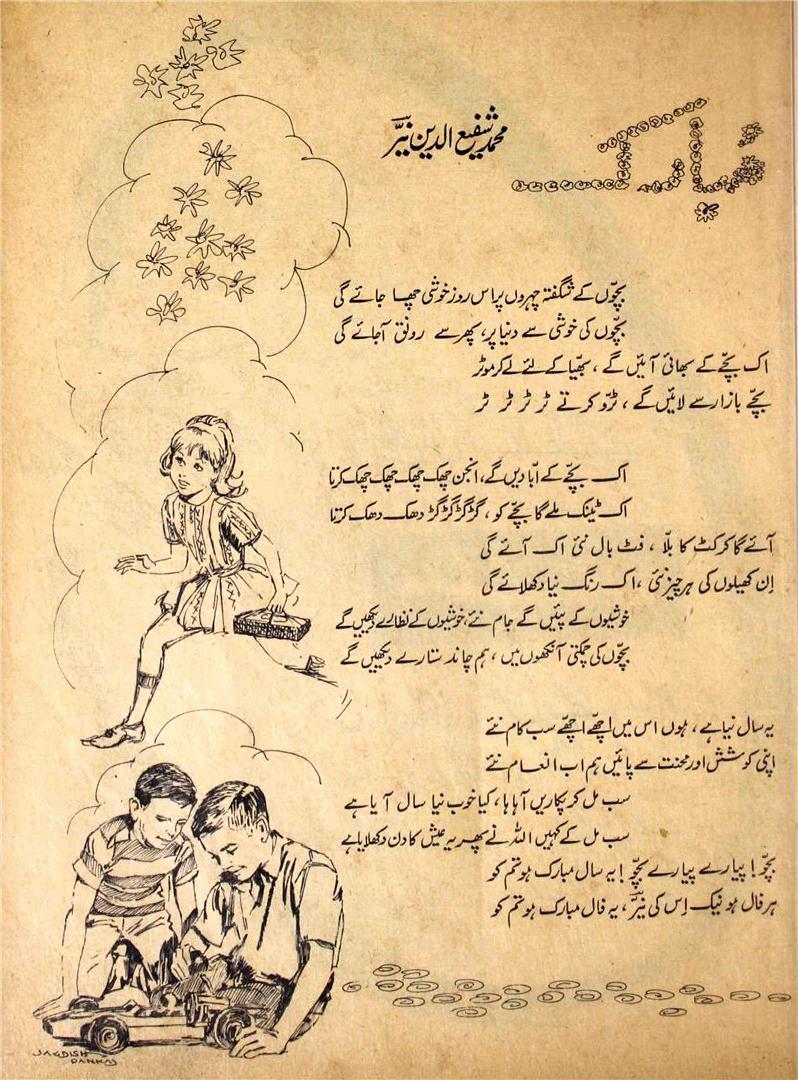 مبارک
محمد شفیع الدین نیّر
بچّوں کے شگفتہ چہروں پر اس روز خوشی چھا جائے گی
بچّوں کی خوشی سے دنیا پر، پھر سے رونق آجائے گی
اک بچّے کے بھائی آئیں گے، بھیّا کے لئے لے کر موٹر
بچّے بازار سے لائیں گے، ٹرّو کرتے ٹر ٹر ٹر ٹر
اک بچّے کے ابّا دیں گے، انجن چھک چھک چھک چھک کرتا
اک ٹینک ملے گا بچّے کو، گڑگڑگڑگڑ دھک دھک کرتا
آئے گا کرکٹ کا بلّا، فٹ بال نئی اک آئے گی
اِن کھیلوں کی ہر چیز نئی، اک رنگ نیا دکھلائے گی
خوشیوں کے پئیں گے جام نئے، خوشیوں کے نظارے دیکھیں گے
بچّوں کی چمکتی آنکھوں میں، ہم چاند ستارے دیکھیں گے
یہ سال نیا ہے، ہوں اس میں اچھّے اچھّے سب کام نئے
اپنی کوشش اور محنت سے پائیں ہم اب انعام نئے
سب مل کر پکاریں آہا ہا، کیا خوب نیا سال آیا ہے
سب مل کے کہیں اللہ نے پھر یہ عیش کا دن دکھلایا ہے
بچّو! پیارے پیارے بچّو! یہ سال مبارک ہو تم کو
ہر فال ہو نیک اِس کی نیّر، یہ فال مبارک ہو تم کو
JAGDISH
PANKAJ